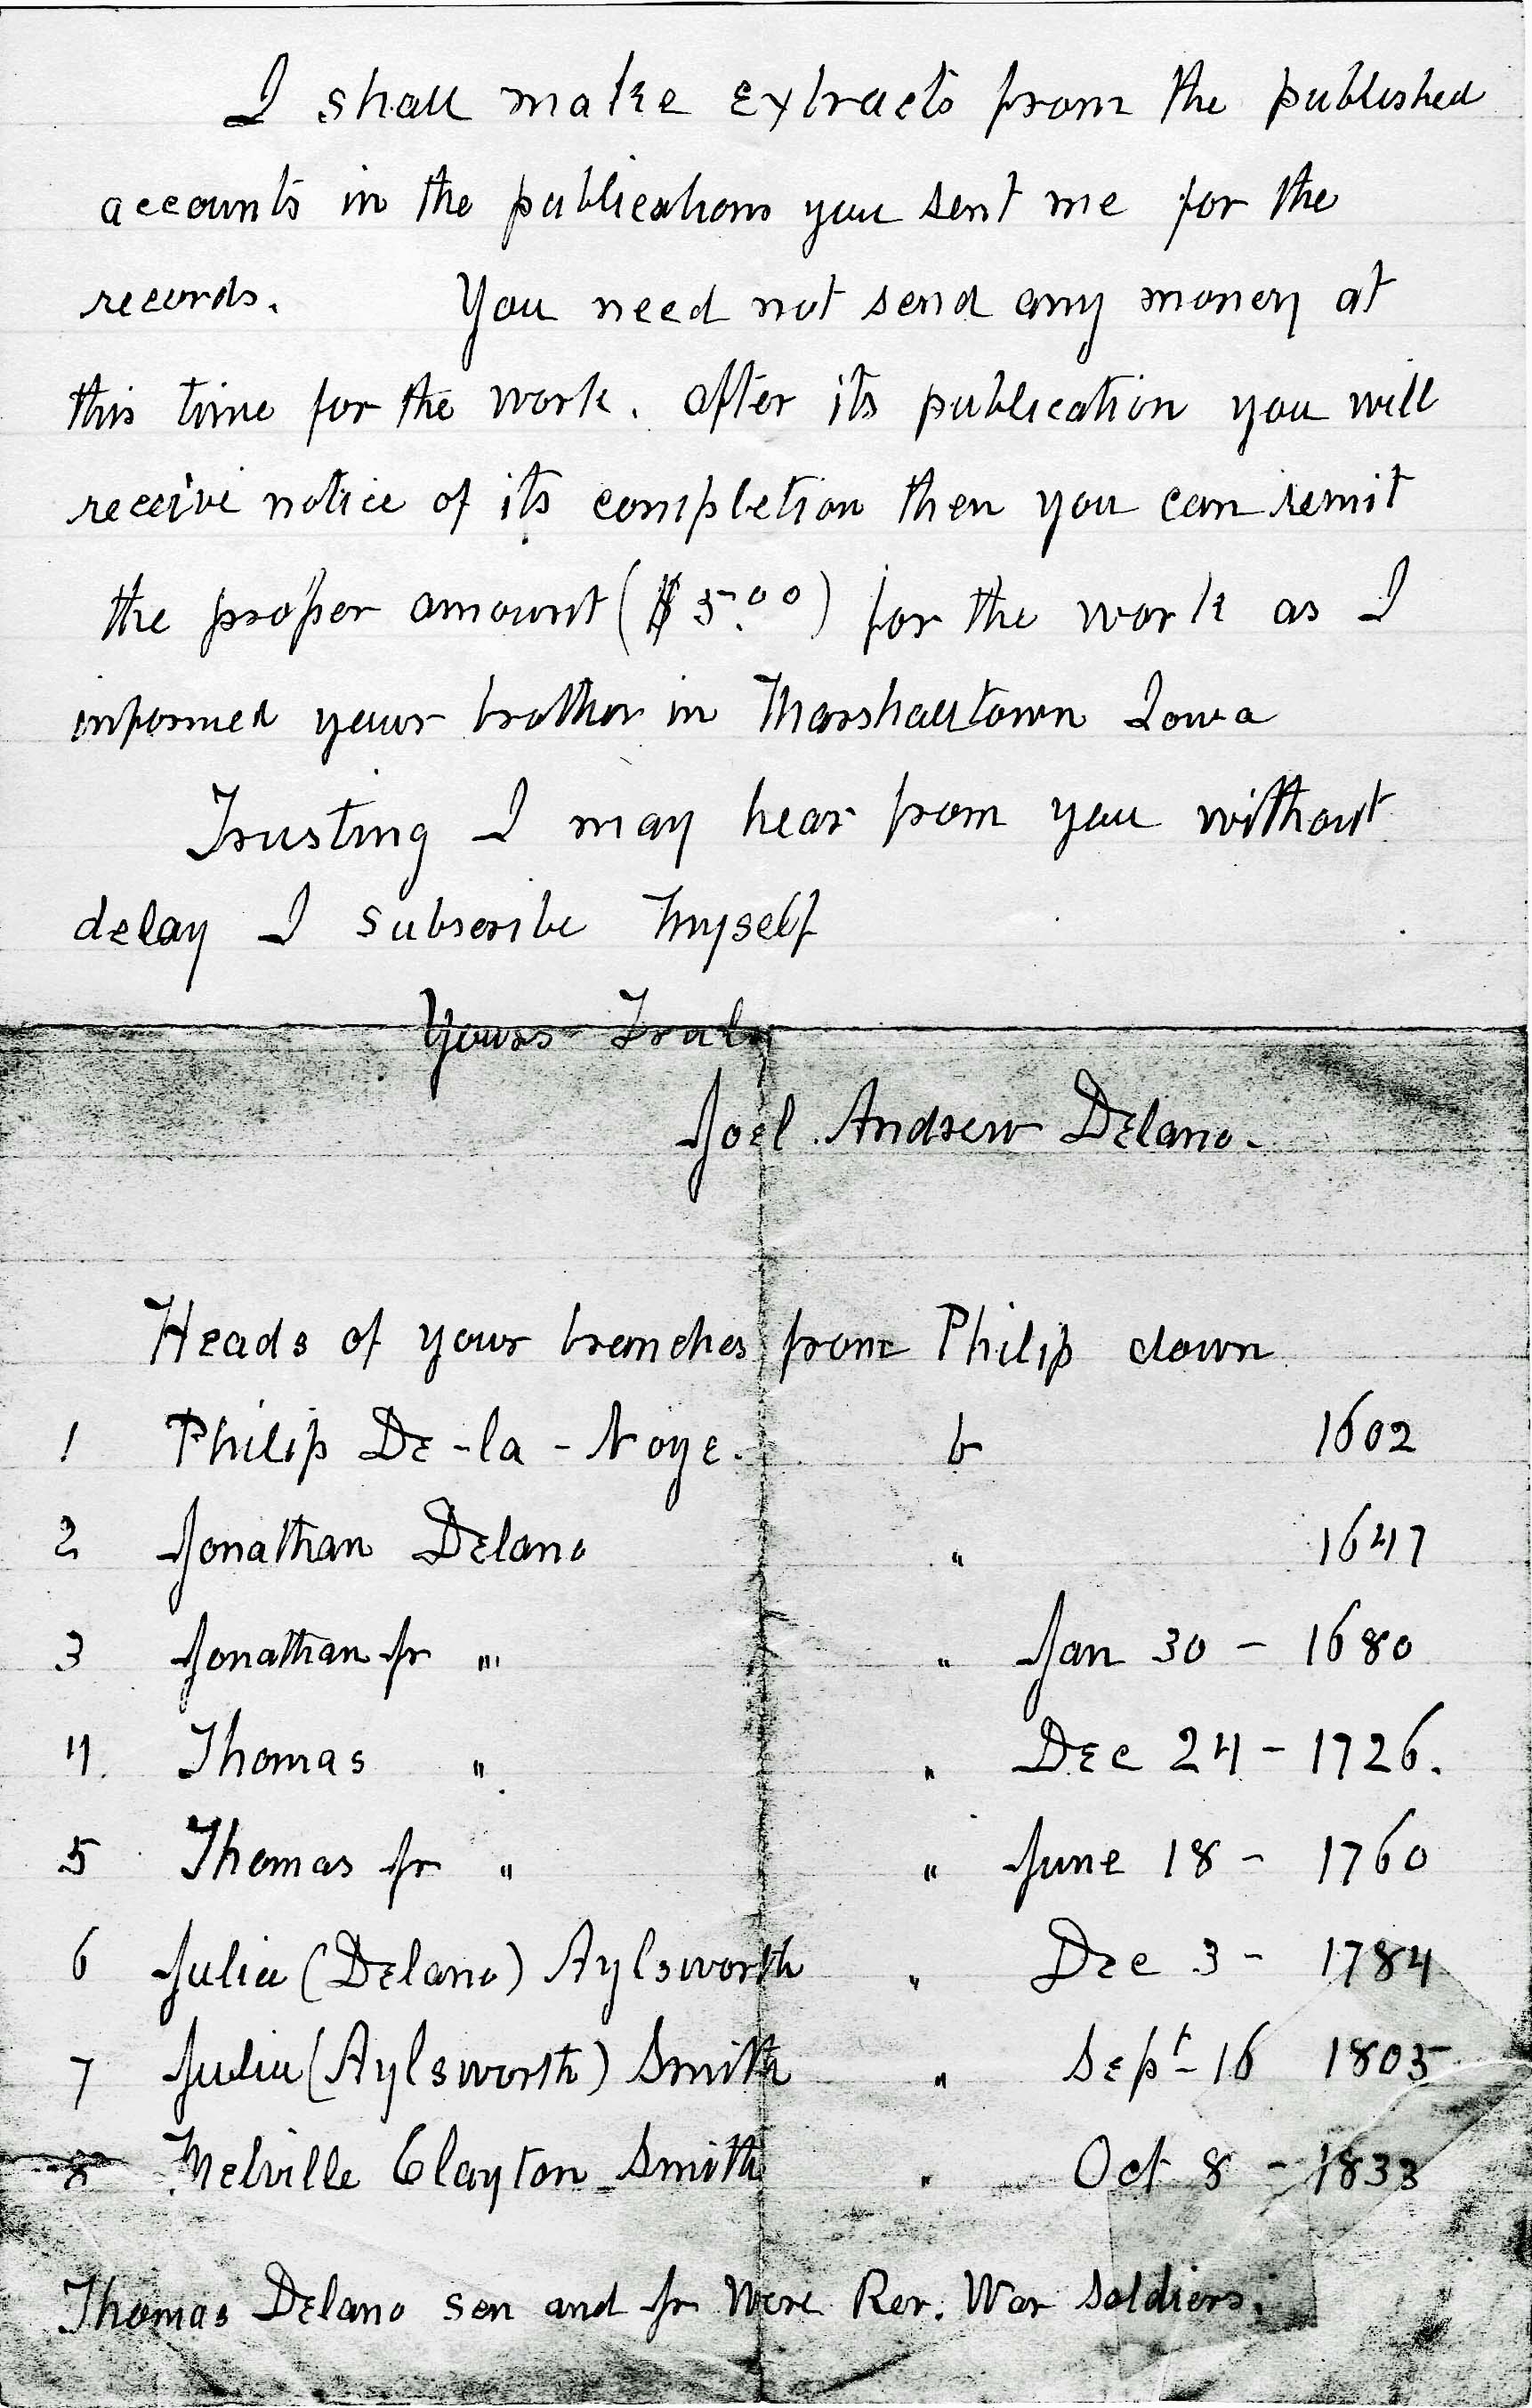 I shall make extracts from the published
accounts in the publications you sent me for the
records. You need not send any money at
this time for the work. After its publication you will
receive notice of its completion then you can remit
the proper amount ($5.00) for the work as I
informed your brother in Marshalltown Iowa
Trusting I may hear from you without
delay I subscribe Myself
Yours Truly
Joel Andrew Delano.
Heads of your branches from Philip down
1 Philip De-la-Noye. b 1602
2 Jonathan Delano " 1647
3 Jonathan Jr " " Jan 30 - 1680
4. Thomas " " Dec 24 - 1726.
5 Thomas Jr " " June 18 - 1760
6 Julia (Delano) Aylsworth " Dec 3 - 1784
7 Julia (Aylsworth) Smith " Sept - 16 1805
8 Melville Clayton Smith " Oct 8 - 1833
Thomas Delano Sen and Jr Were Rev. War Soldiers.